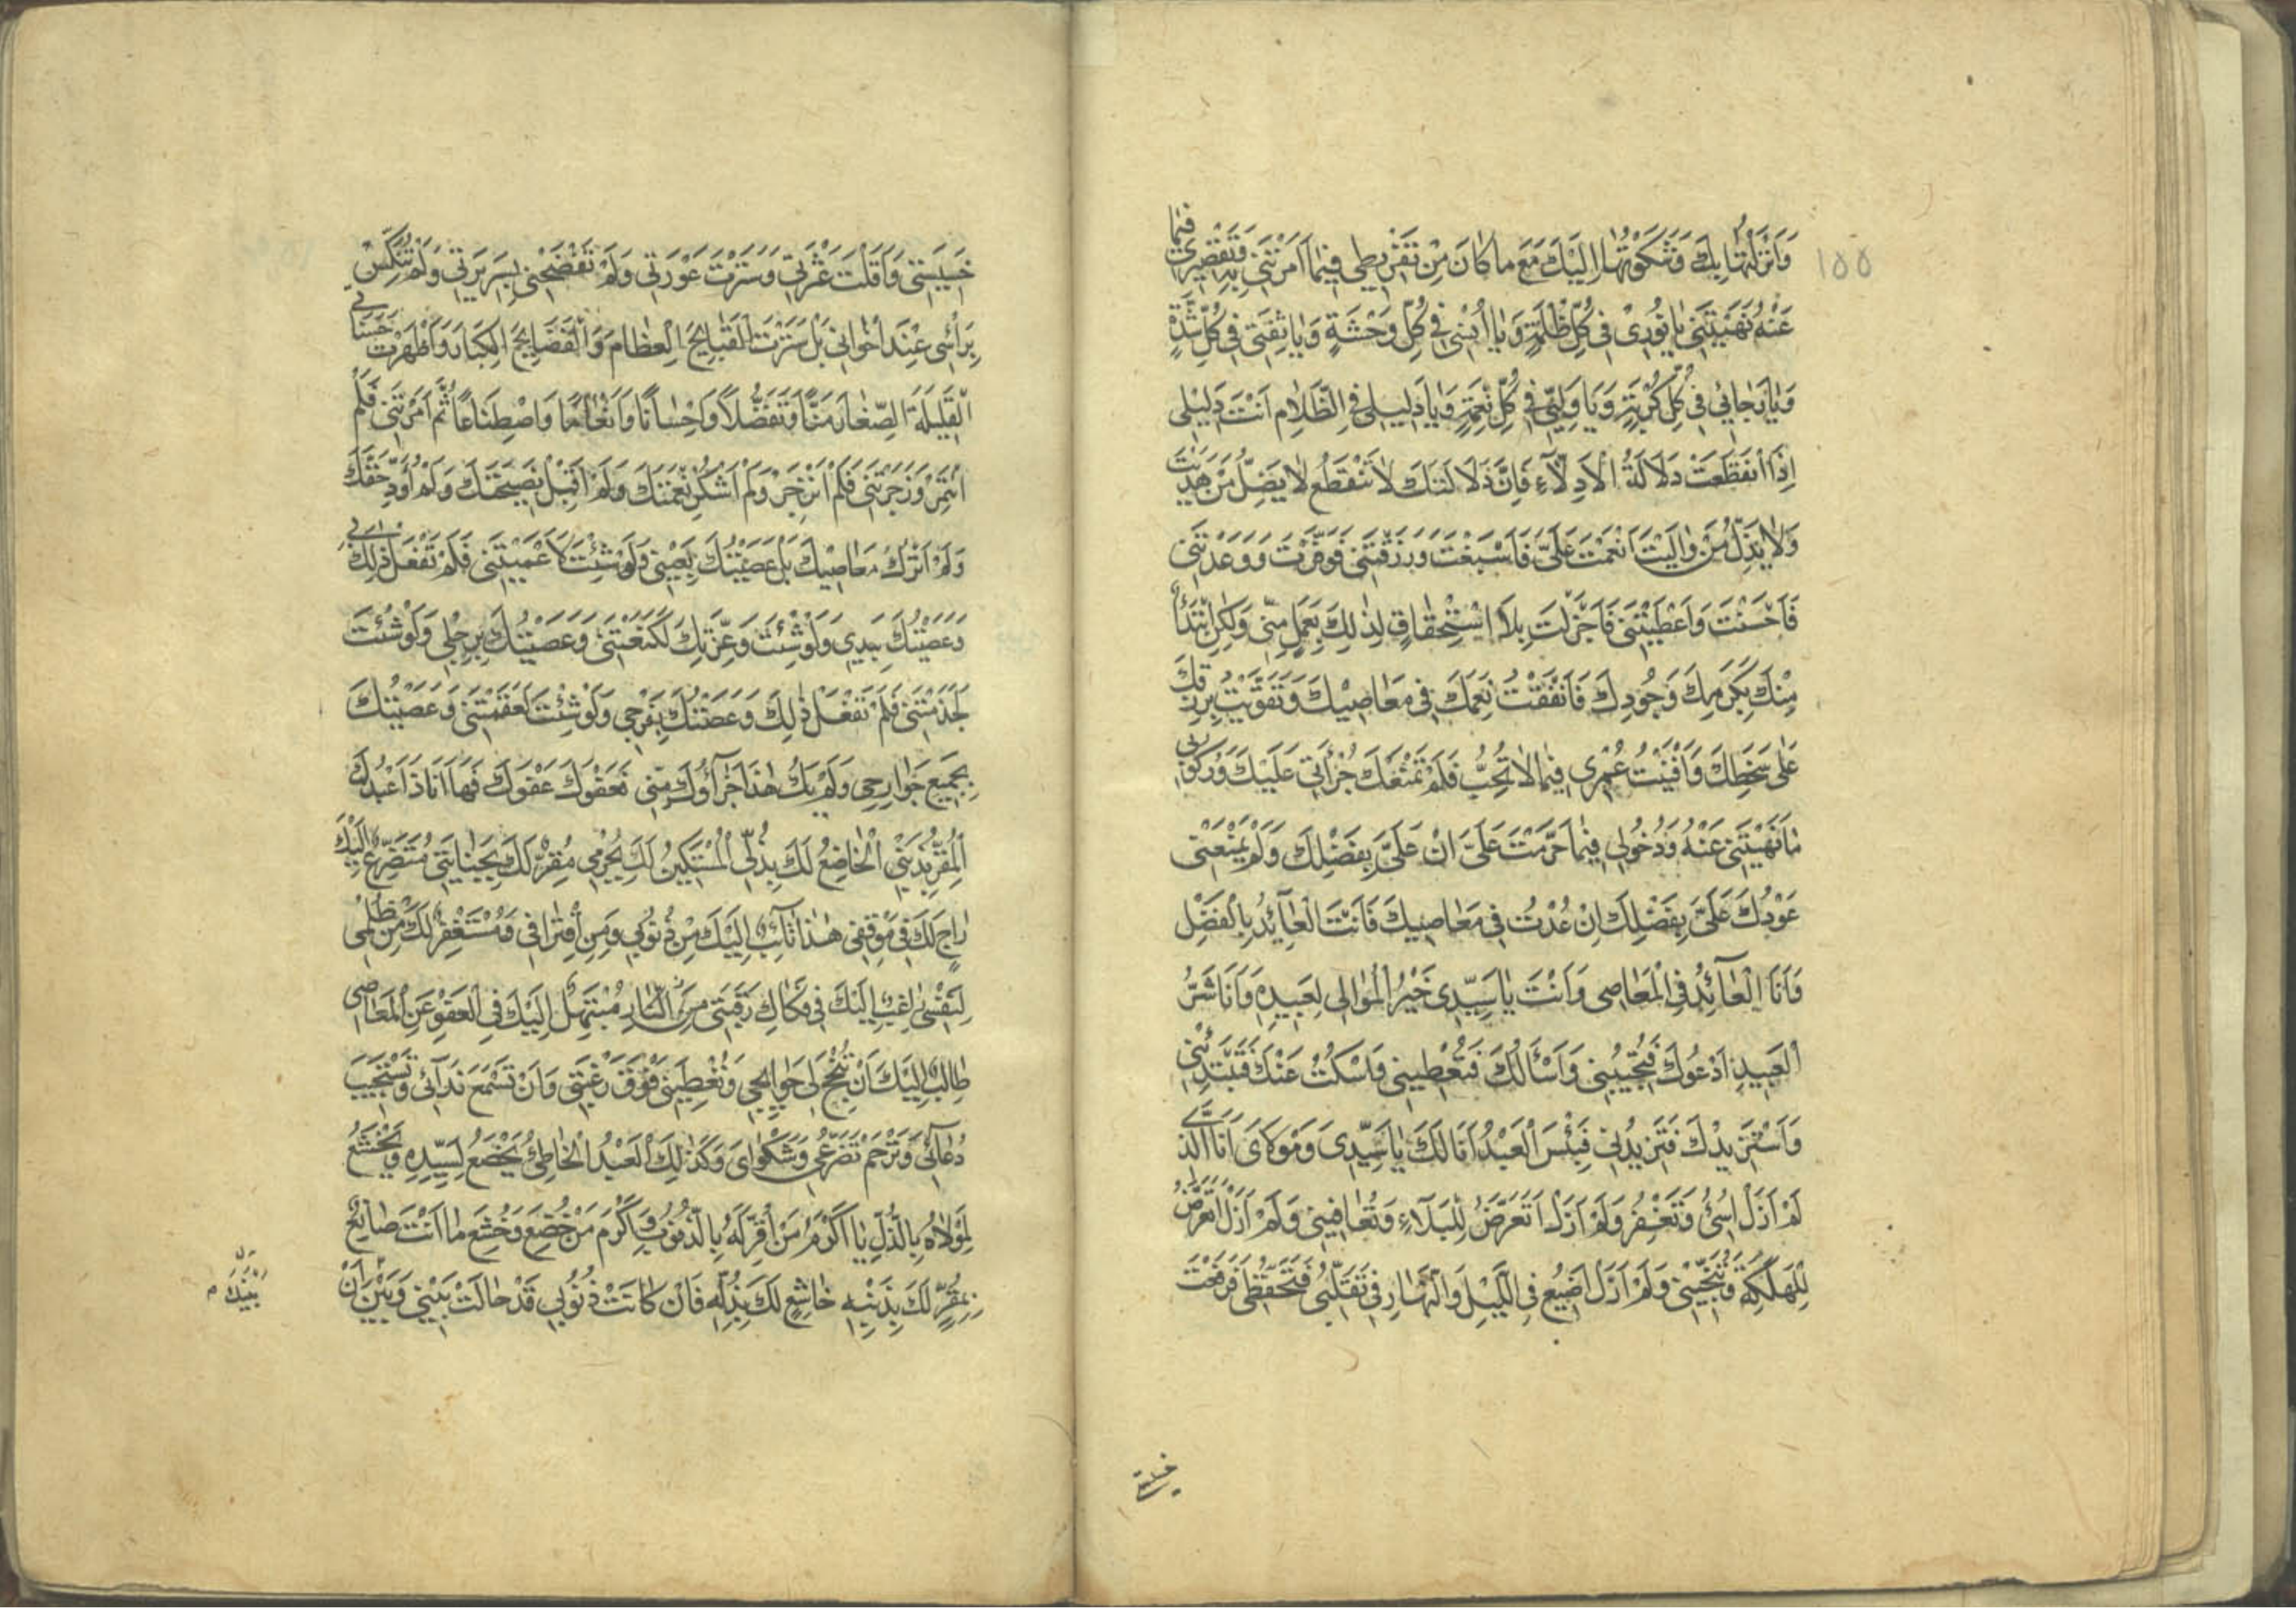 ١٥٥
وَاَنْزَلْتُهَا بِكَ وَشَكَوْتُهَا اِلَيْكَ مَعَ مَا كَانَ مِنْ تَفْرِيطِي فِيمَا اَمَرْتَنِي بِهِ وَتَقْصِيرِي فِيمَا
عَنْهُ نَهَيْتَنِي يَا نُورِي فِي كُلِّ ظُلْمَةٍ وَيَا اُنْسِي فِي كُلِّ وَحْشَةٍ وَيَا ثِقَتِي فِي كُلِّ شِدَّةٍ
وَيَا رَجَائِي فِي كُلِّ كُرْبَةٍ وَيَا وَلِيِّي فِي كُلِّ نِعْمَةٍ وَيَا دَلِيلِي فِي الظَّلَامِ اَنْتَ دَلِيلِي
اِذَا انْقَطَعَتْ دَلَالَةُ الْاَدِلَّاءِ فَاِنَّ دَلَالَتَكَ لَا تَنْقَطِعُ لَا يَضِلُّ مَنْ هَدَيْتَ
وَلَا يَذِلُّ مَنْ وَالَيْتَ اَنْعَمْتَ عَلَيَّ فَاَسْبَغْتَ وَرَزَقْتَنِي فَوَفَّرْتَ وَوَعَدْتَنِي
فَاَحْسَنْتَ وَاَعْطَيْتَنِي فَاَجْزَلْتَ بِلَا اسْتِحْقَاقٍ لِذٰلِكَ بِعَمَلٍ مِنِّي وَلٰكِنِ ابْتِدَاءً
مِنْكَ بِكَرَمِكَ وَجُودِكَ فَاَنْفَقْتُ نِعَمَكَ فِي مَعَاصِيكَ وَتَقَوَّيْتُ بِرِزْقِكَ
عَلٰى سَخَطِكَ وَاَفْنَيْتُ عُمْرِي فِيمَا لَا تُحِبُّ فَلَمْ تَمْنَعْكَ جُرْاَتِي عَلَيْكَ وَرُكُوبِي
مَا نَهَيْتَنِي عَنْهُ وَدُخُولِي فِيمَا حَرَّمْتَ عَلَيَّ اَنْ عَلَيَّ بِفَضْلِكَ وَلَمْ يَمْنَعْنِي
عَوْدُكَ عَلَيَّ بِفَضْلِكَ اِنْ عُدْتُ فِي مَعَاصِيكَ فَاَنْتَ الْعَائِدُ بِالْفَضْلِ
وَاَنَا الْعَائِدُ فِي الْمَعَاصِي وَاَنْتَ يَا سَيِّدِي خَيْرُ الْمَوَالِي لِعَبِيدِهِ وَاَنَا شَرُّ
الْعَبِيدِ اَدْعُوكَ فَتُجِيبُنِي وَاَسْأَلُكَ فَتُعْطِينِي وَاَسْكُتُ عَنْكَ فَتَبْتَدِئُنِي
وَاَسْتَزِيدُكَ فَتَزِيدُنِي فَبِئْسَ الْعَبْدُ اَنَا لَكَ يَا سَيِّدِي وَمَوْلَايَ اَنَا الَّذِي
لَمْ اَزَلْ اُسِيءُ وَتَغْفِرُ وَلَمْ اَزَلْ اَتَعَرَّضُ لِلْبَلَاءِ وَتُعَافِينِي وَلَمْ اَزَلْ اَتَعَرَّضُ
لِلْهَلَكَةِ وَتُنَجِّينِي وَلَمْ اَزَلْ اُضَيِّعُ فِي اللَّيْلِ وَالنَّهَارِ فِي تَقَلُّبِي فَتَحْفَظُنِي فَرَفَعْتَ
خَسِيسَتِي وَاَقَلْتَ عَثْرَتِي وَسَتَرْتَ عَوْرَتِي وَلَمْ تَفْضَحْنِي بِسَرِيرَتِي وَلَمْ تُنَكِّسْ
بِرَاْسِي عِنْدَ اِخْوَانِي بَلْ سَتَرْتَ الْقَبَايِحَ الْعِظَامَ وَالْفَضَايِحَ الْكِبَارَ وَاَظْهَرْتَ حَسَنَاتِي
الْقَلِيلَةَ الصِّغَارَ مَنًّا وَتَفَضُّلًا وَاِحْسَانًا وَاِنْعَامًا وَاصْطِنَاعًا ثُمَّ اَمَرْتَنِي فَلَمْ
اَئْتَمِرْ وَزَجَرْتَنِي فَلَمْ اَنْزَجِرْ وَلَمْ اَشْكُرْ نِعْمَتَكَ وَلَمْ اَقْبَلْ نَصِيحَتَكَ وَلَمْ اُؤَدِّ حَقَّكَ
وَلَمْ اَتْرُكْ مَعَاصِيكَ بَلْ عَصَيْتُكَ بِعَيْنِي وَلَوْ شِئْتَ لَاَعْمَيْتَنِي فَلَمْ تَفْعَلْ ذٰلِكَ بِي
وَعَصَيْتُكَ بِيَدِي وَلَوْ شِئْتَ وَعِزَّتِكَ لَكَنَّعْتَنِي وَعَصَيْتُكَ بِرِجْلِي وَلَوْ شِئْتَ
لَجَذَمْتَنِي فَلَمْ تَفْعَلْ ذٰلِكَ وَعَصَيْتُكَ بِفَرْجِي وَلَوْ شِئْتَ لَعَقَمْتَنِي وَعَصَيْتُكَ
بِجَمِيعِ جَوَارِحِي وَلَمْ يَكُ هٰذَا جَزَاؤُكَ مِنِّي فَعَفْوَكَ عَفْوَكَ فَهَا اَنَا ذَا عَبْدُكَ
الْمُقِرُّ بِذَنْبِي الْخَاضِعُ لَكَ بِذُلِّي الْمُسْتَكِينُ لَكَ بِجُرْمِي مُقِرٌّ لَكَ بِجِنَايَتِي مُتَضَرِّعٌ اِلَيْكَ
رَاجٍ لَكَ فِي مَوْقِفِي هٰذَا تَائِبٌ اِلَيْكَ مِنْ ذُنُوبِي وَمِنِ اقْتِرَافِي وَمُسْتَغْفِرٌ لَكَ مِنْ ظُلْمِي
لِنَفْسِي رَاغِبٌ اِلَيْكَ فِي فَكَاكِ رَقَبَتِي مِنَ النَّارِ مُبْتَهِلٌ اِلَيْكَ فِي الْعَفْوِ عَنِ الْمَعَاصِي
طَالِبٌ اِلَيْكَ اَنْ تُنْجِحَ لِي حَوَايِجِي وَتُعْطِيَنِي فَوْقَ رَغْبَتِي وَاَنْ تَسْمَعَ نِدَائِي وَتَسْتَجِيبَ
دُعَائِي وَتَرْحَمَ تَضَرُّعِي وَشَكْوَايَ وَكَذٰلِكَ الْعَبْدُ الْخَاطِئُ يَخْضَعُ لِسَيِّدِهِ وَيَخْشَعُ
لِمَوْلَاهُ بِالذُّلِّ يَا اَكْرَمَ مَنْ اُقِرَّ لَهُ بِالذُّنُوبِ وَاَكْرَمَ مَنْ خُضِعَ وَخُشِعَ مَا اَنْتَ صَانِعٌ
بِمُقِرٍّ لَكَ بِذَنْبِهِ خَاشِعٍ لَكَ بِذُلِّهِ فَاِنْ كَانَتْ ذُنُوبِي قَدْ حَالَتْ بَيْنِي وَبَيْنَ اَنْ